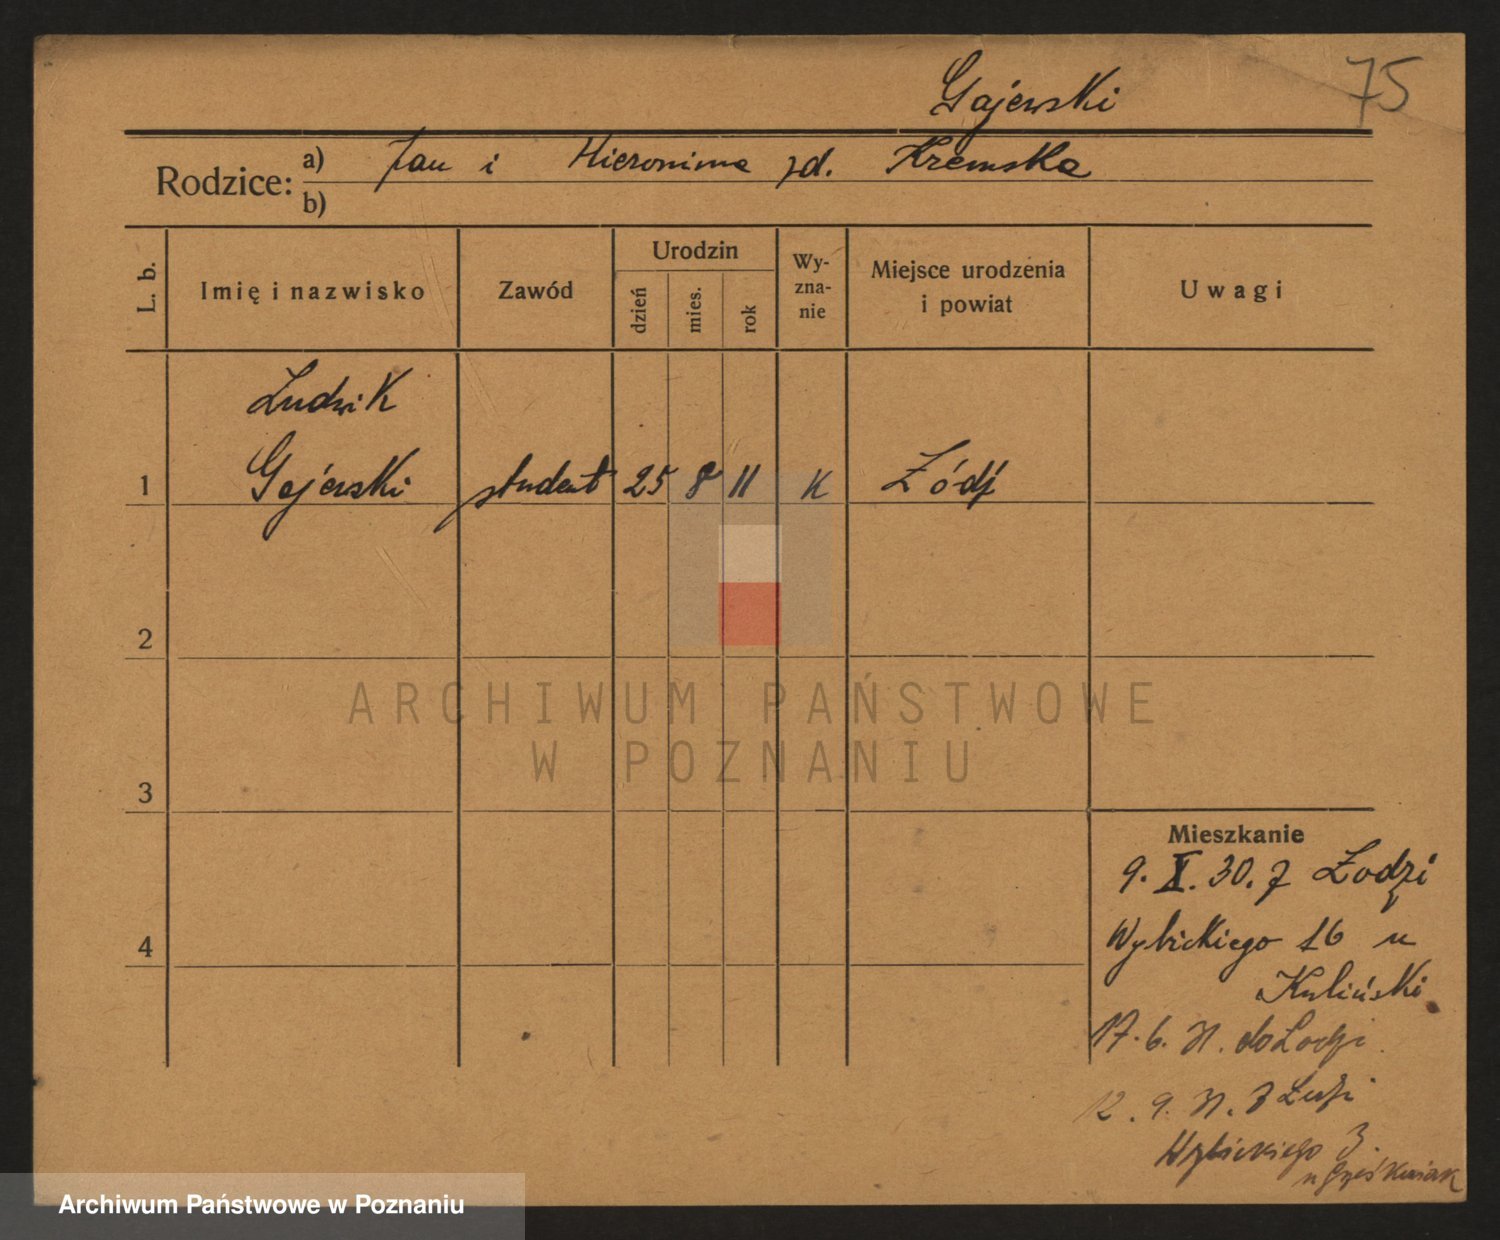 Gajewski
75
Rodzice: a) Jan i Hieronima zd. Kremska
b)
L. b.
Imię i nazwisko
Zawód
Urodzin
dzień
mies.
rok
Wy-
zna-
nie
Miejsce urodzenia
i powiat
Uwagi
Ludwik
1 Gajewski student 25 8 11 K Łódź
2
3
4
Mieszkanie
9. X. 30. z Łodzi
Wybickiego 16 u
Kuliński
17. 6. 31. do Łodzi
12. 9. 31. z Łodzi
Wybickiego 3.
ARCHIWUM PAŃSTWOWE
W POZNANIU
Archiwum Państwowe w Poznaniu